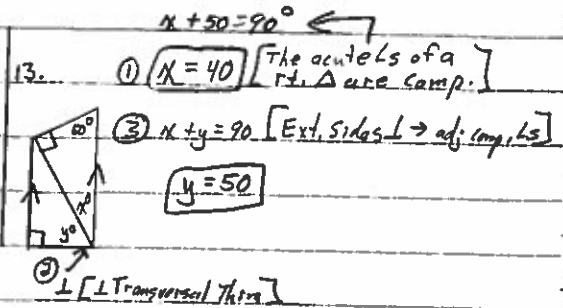 x + 50 = 90°
13. ① x = 40 [The acute ∠s of a rt. △ are comp.]
③ x + y = 90 [Ext. Sides ⊥ → adj. comp. ∠s]
y = 50
50°
x°
y°
②
⊥ [⊥ Transversal Thm]